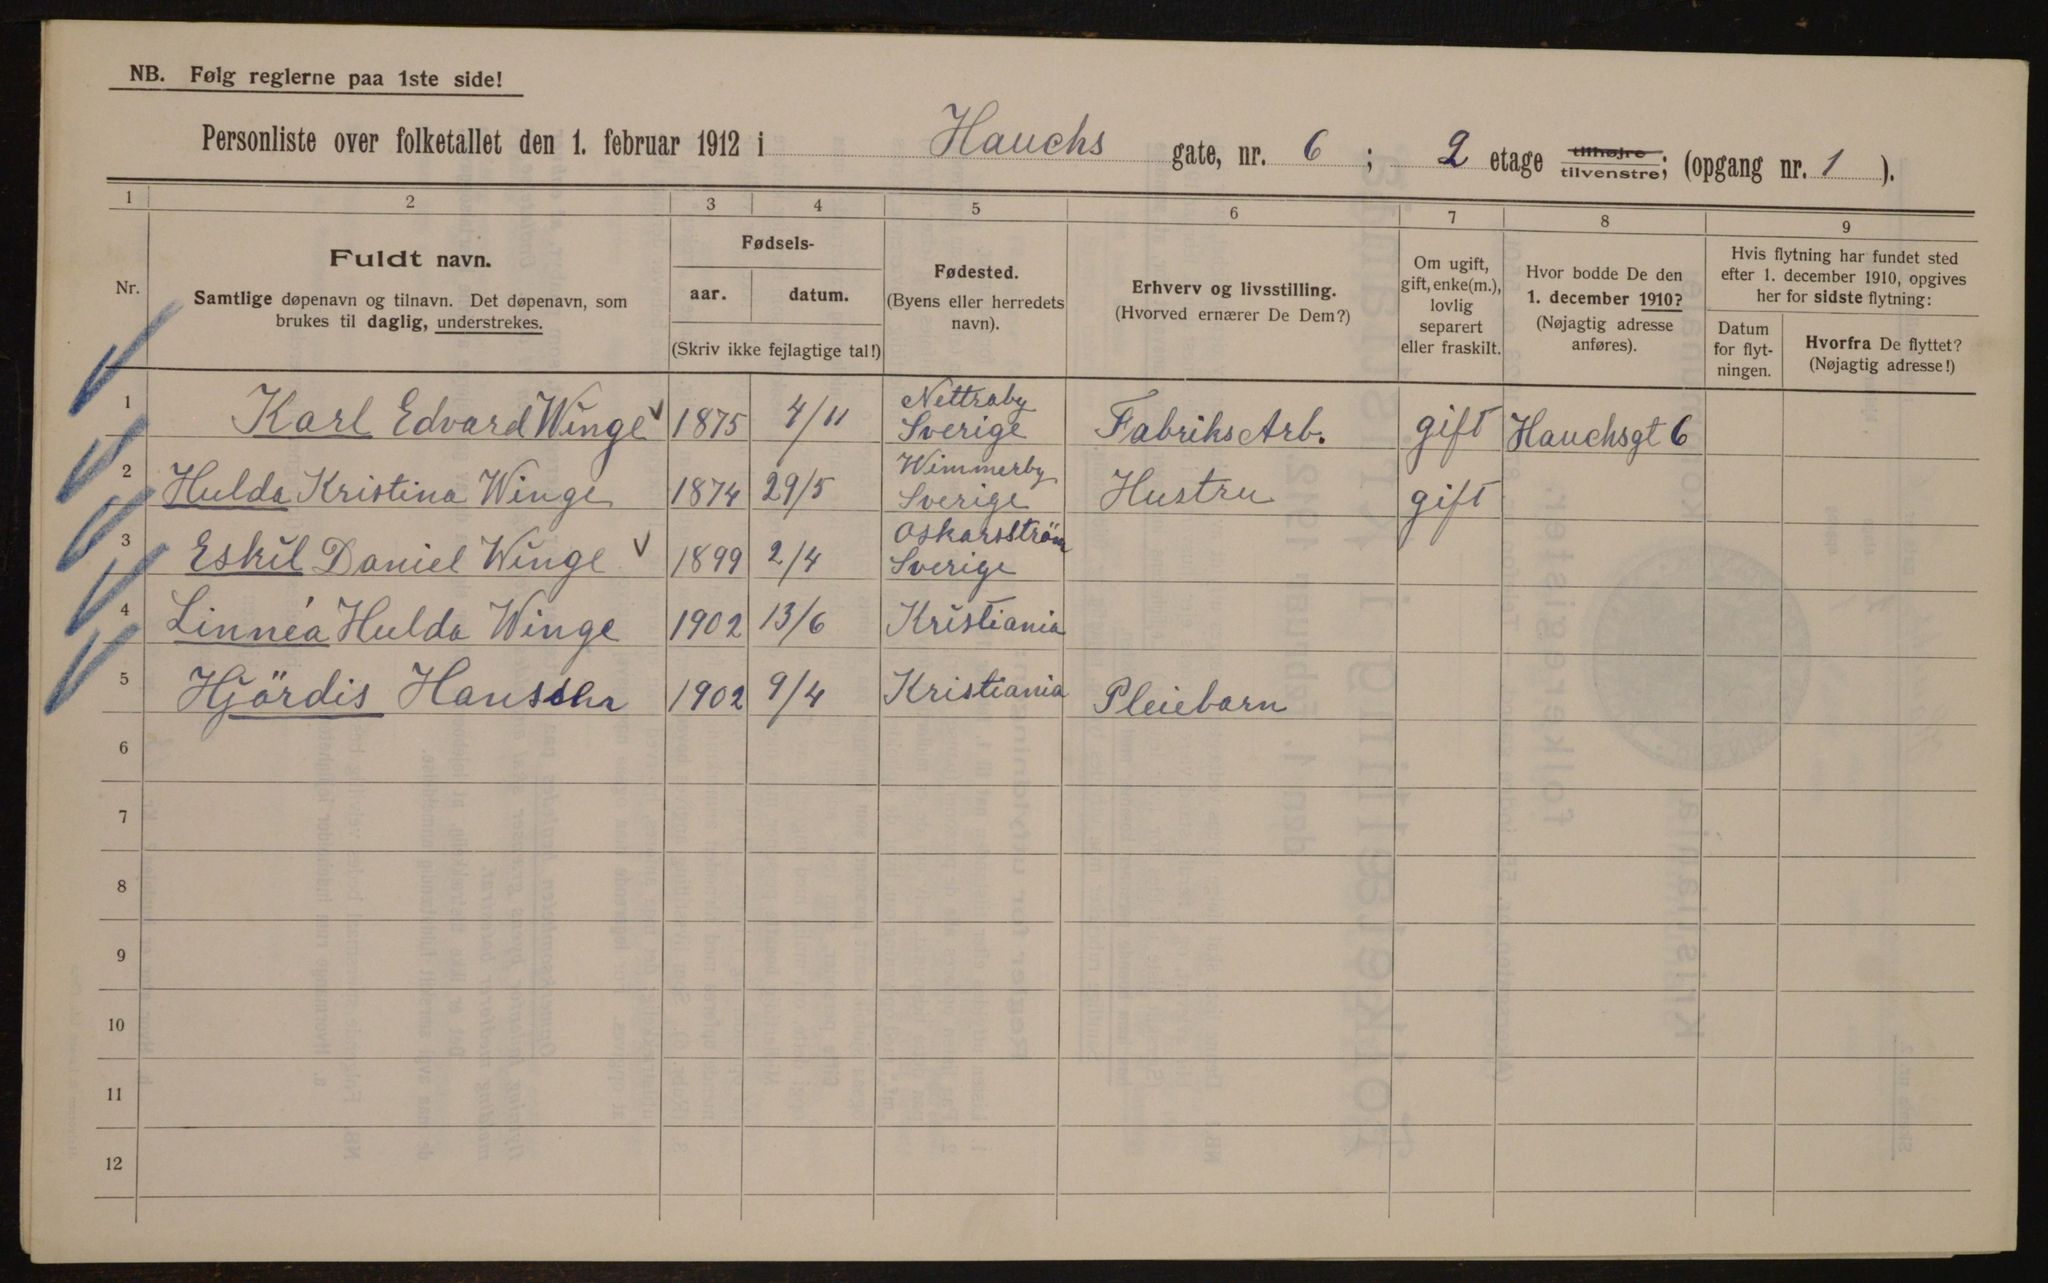 NB. Følg reglerne paa 1ste side!
Personliste over folketallet den 1. februar 1912 i Hauchs gate, nr. 6 ; 2 etage tilhøjre tilvenstre; (opgang nr. 1 ).
1 2 3 4 5 6 7 8 9
Nr.
Fuldt navn.
Samtlige døpenavn og tilnavn. Det døpenavn, som
brukes til daglig, understrekes.
Fødsels-
aar. datum.
(Skriv ikke fejlagtige tal!)
Fødested.
(Byens eller herredets
navn).
Erhverv og livsstilling.
(Hvorved ernærer De Dem?)
Om ugift,
gift, enke(m.),
lovlig
separert
eller fraskilt.
Hvor bodde De den
1. december 1910?
(Nøjagtig adresse
anføres).
Hvis flytning har fundet sted
efter 1. december 1910, opgives
her for sidste flytning:
Datum
for flyt-
ningen.
Hvorfra De flyttet?
(Nøjagtig adresse!)
1 Karl Edvard Winge 1875 4/11 Nettraby Sverige Fabriks Arb. gift Hauchsgt 6
2 Hulda Kristina Winge 1874 29/5 Wimmerby Sverige Hustru gift
3 Eskil Daniel Winge 1899 2/4 Oskarsström Sverige
4 Linnéa Hulda Winge 1902 13/6 Kristiania
5 Hjördis 1902 9/4 Kristiania Pleiebarn
6
7
8
9
10
11
12